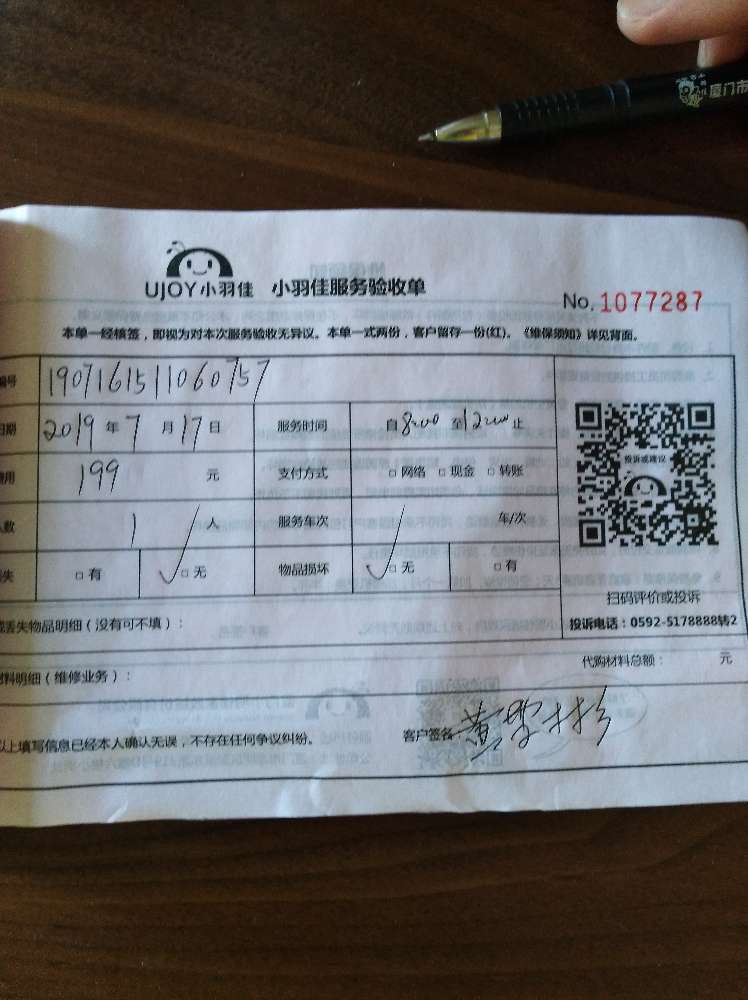 厦门市
UJOY小羽佳 小羽佳服务验收单
No. 1077287
本单一经核签，即视为对本次服务验收无异议。本单一式两份，客户留存一份(红)。《维保须知》详见背面。
编号 1907161511060757
日期 2019 年 7 月 17 日 服务时间 自 8:00 至 12:00 止
费用 199 元 支付方式 □ 网络 □ 现金 □ 转账
人数 1 人 服务车次 车/次
失 □ 有 ✓□ 无 物品损坏 ✓□ 无 □ 有
投诉或建议
扫码评价或投诉
投诉电话：0592-5178888转2
丢失物品明细（没有可不填）：
代购材料总额： 元
材料明细（维修业务）：
以上填写信息已经本人确认无误，不存在任何争议纠纷。 客户签名 黄